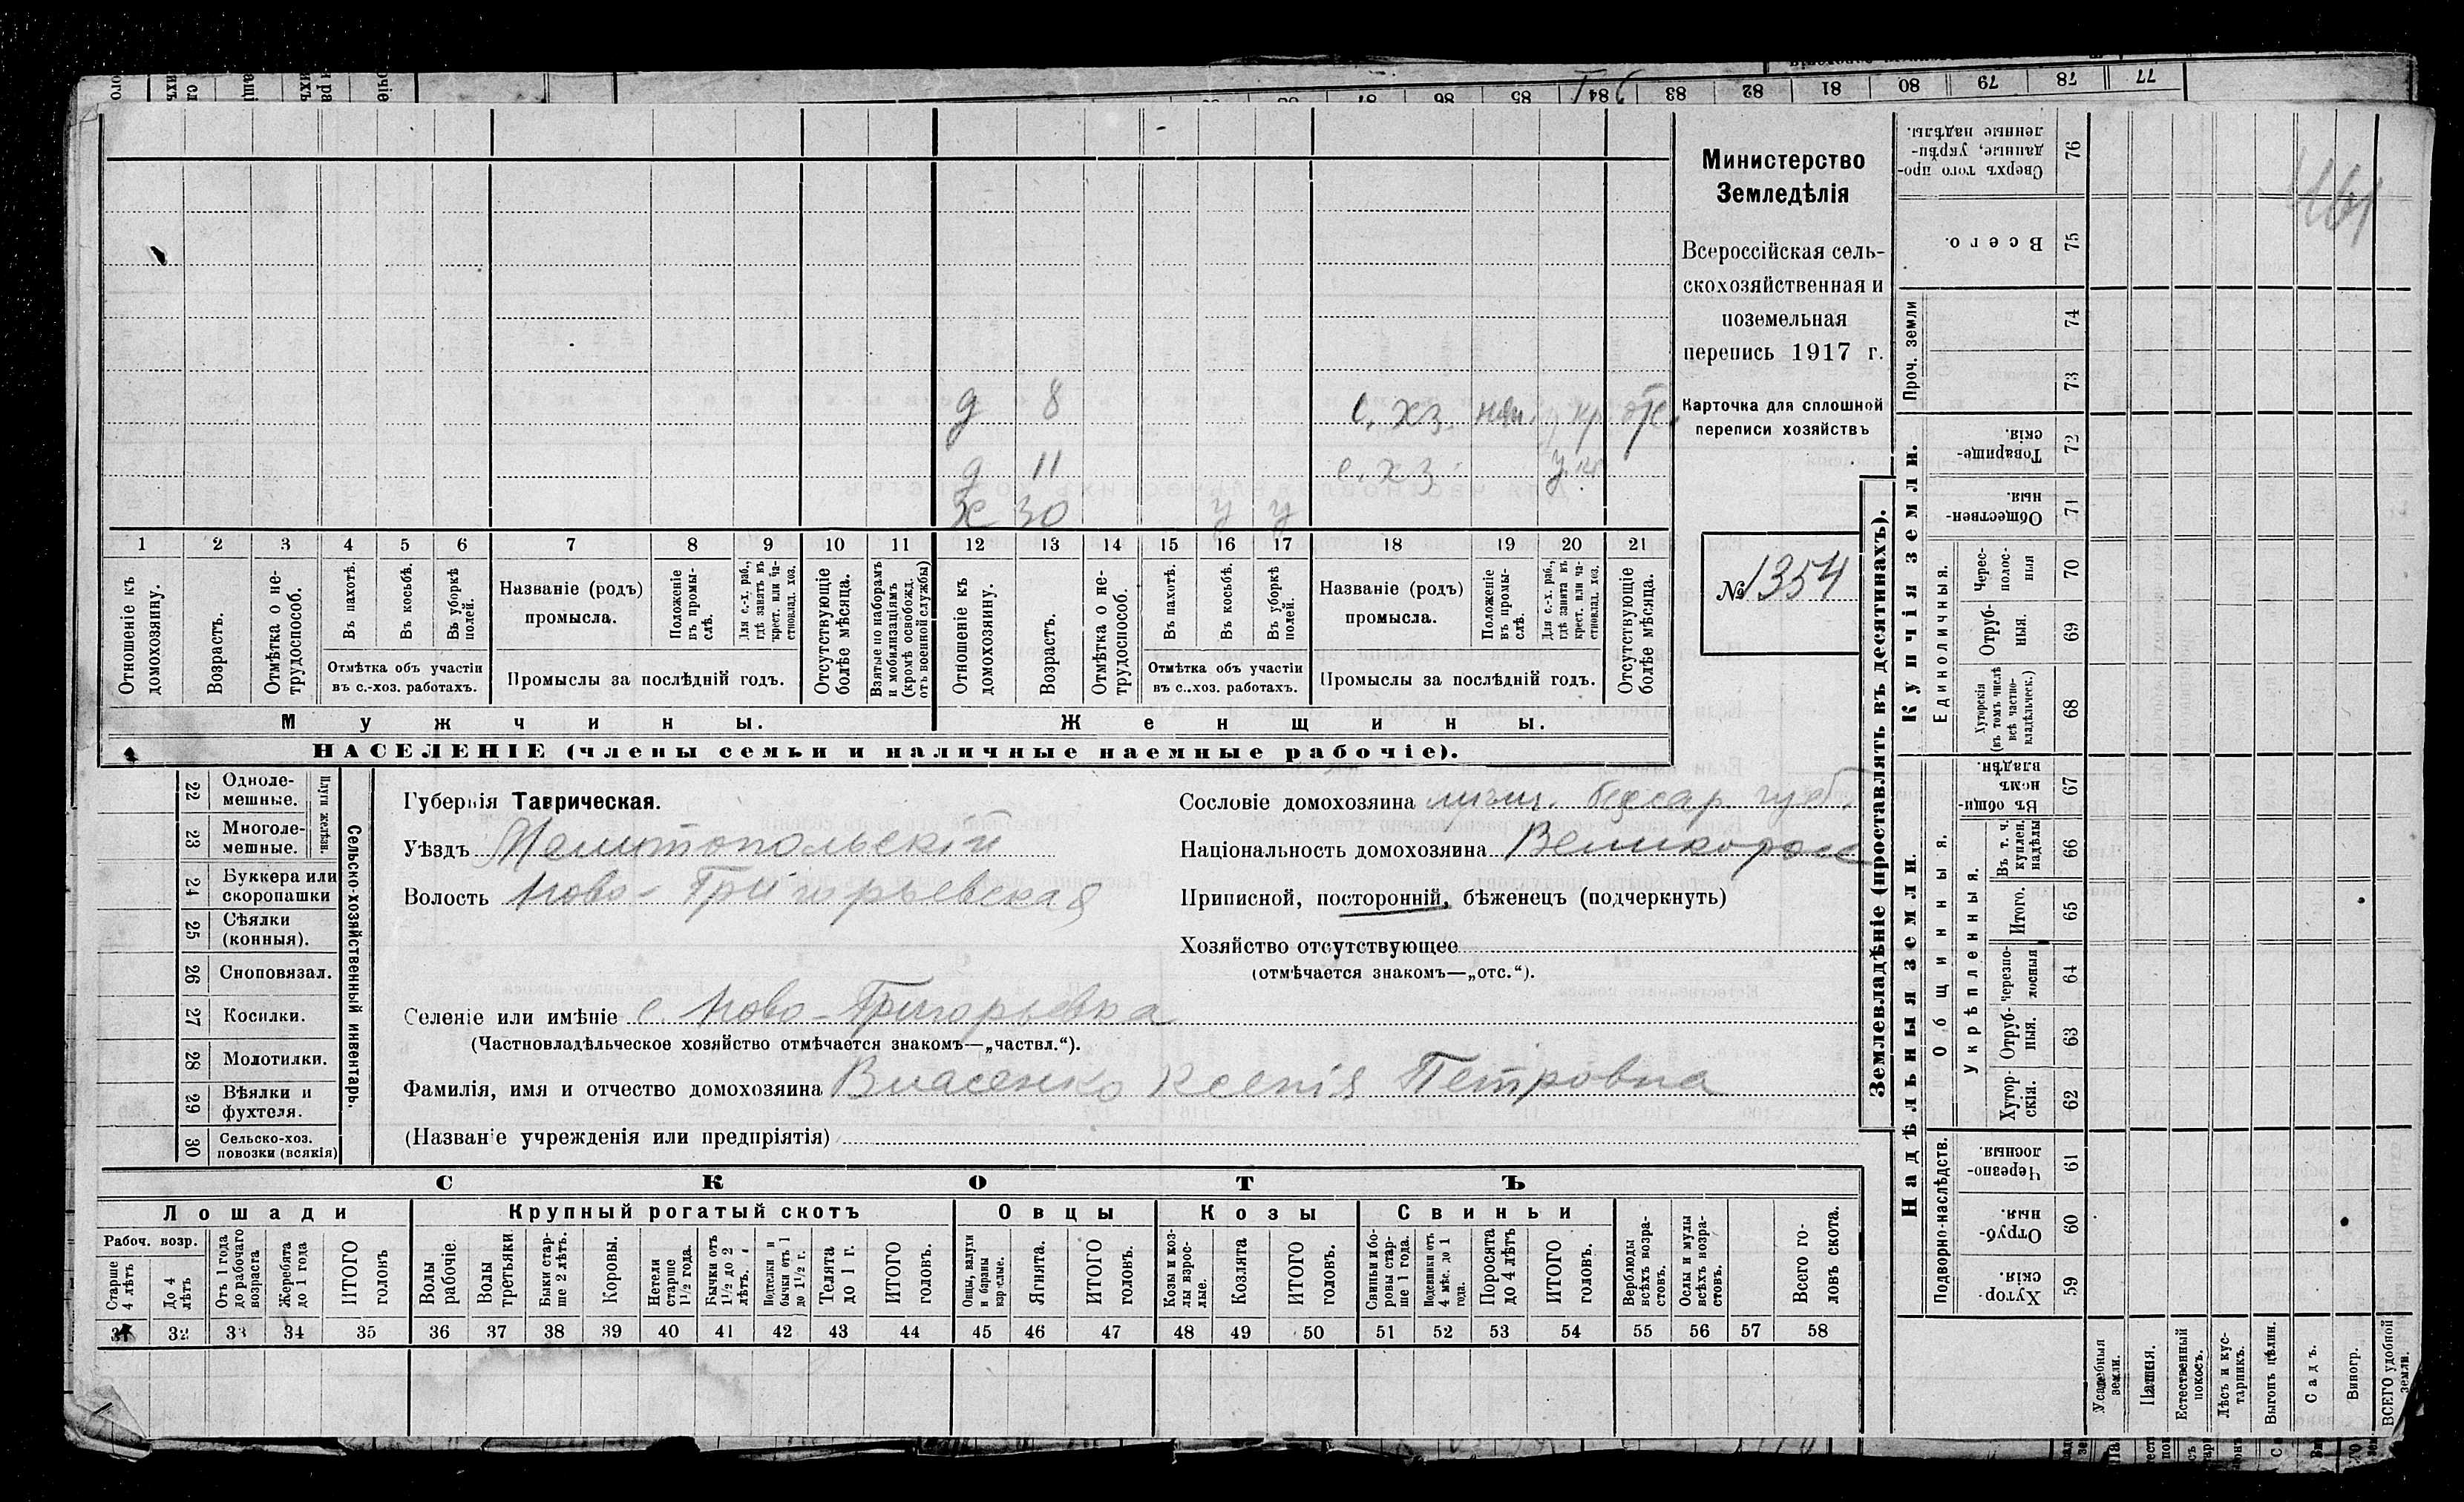 77 78 79 80 81 82 83 84 85 86 87
Министерство
Земледѣлія
Всероссійская сель-
скохозяйственная и
поземельная
перепись 1917 г.
Карточка для сплошной
переписи хозяйствъ
№ 1354
д 8 с. хз.
д 11 с. хз.
ж 30 у у
1 2 3 4 5 6 7 8 9 10 11 12 13 14 15 16 17 18 19 20 21
Отношеніе къ домохозяину.
Возрастъ.
Отмѣтка о не-трудоспособ.
Въ пахотѣ.
Въ косьбѣ.
Въ уборкѣ полей.
Отмѣтка объ участіи
въ с.-хоз. работахъ.
Названіе (родъ)
промысла.
Положеніе въ промы-слѣ.
Для с.-х. раб., гдѣ занятъ въ крест. или ча-стновлад. хоз.
Промыслы за послѣдній годъ.
Отсутствующіе болѣе мѣсяца.
Взятые по наборамъ и мобилизаціямъ (кромѣ освобожд. отъ военной службы)
Отношеніе къ домохозяину.
Возрастъ.
Отмѣтка о не-трудоспособ.
Въ пахотѣ.
Въ косьбѣ.
Въ уборкѣ полей.
Отмѣтка объ участіи
въ с..хоз. работахъ.
Названіе (родъ)
промысла.
Положеніе въ промы-слѣ.
Для с.-х. раб., гдѣ занята въ крест. или ча-стновлад. хоз.
Промыслы за послѣдній годъ.
Отсутствующіе болѣе мѣсяца.
Мужчины. Женщины.
НАСЕЛЕНІЕ (члены семьи и наличные наемные рабочіе).
22 Одноле-мешные.
23 Многоле-мешные.
Плуги желѣзн.
24 Буккера или скоропашки
25 Сѣялки (конныя).
26 Сноповязал.
27 Косилки.
28 Молотилки.
29 Вѣялки и фухтеля.
30 Сельско-хоз. повозки (всякія)
Сельско-хозяйственный инвентарь.
Губернія Таврическая.
Уѣздъ Мелитопольскій
Волость Ново-Григорьевская
Сословіе домохозяина губ.
Національность домохозяина Великоросс
Приписной, посторонній, бѣженецъ (подчеркнуть)
Хозяйство отсутствующее
(отмѣчается знакомъ—„отс.“).
Селеніе или имѣніе с. Ново-Григорьевка
(Частновладѣльческое хозяйство отмѣчается знакомъ—„частвл.“).
Фамилія, имя и отчество домохозяина Власенко Ксенія Петровна
(Названіе учрежденія или предпріятія)
СКОТЪ
Лошади Крупный рогатый скотъ Овцы Козы Свиньи
Рабоч. возр.
Старше 4 лѣтъ
До 4 лѣтъ
Отъ 1 года до рабочаго возраста
Жеребята до 1 года
ИТОГО головъ
Волы рабочіе.
Волы третьяки
Быки стар-ше 2 лѣтъ.
Коровы.
Нетели старше 1½ года.
Бычки отъ 1½ до 2 лѣтъ.
Подтелки и бычки отъ 1 до 1½ г.
Телята до 1 г.
ИТОГО головъ.
Овцы, валухи и бараны взрослые.
Ягнята.
ИТОГО головъ.
Козы и коз-лы взрос-лые.
Козлята
ИТОГО головъ.
Свиньи и бо-ровы стар-ше 1 года.
Подсвинки отъ 4 мѣс. до 1 года.
Поросята до 4 лѣтъ
ИТОГО головъ.
Верблюды всѣхъ возра-стовъ.
Ослы и мулы всѣхъ возра-стовъ.
Всего го-ловъ скота.
31 32 33 34 35 36 37 38 39 40 41 42 43 44 45 46 47 48 49 50 51 52 53 54 55 56 57 58
Землевладѣніе (проставлять въ десятинахъ).
Купчія земли.
Проч. земли
Единоличныя.
Надѣльныя земли.
Общинныя.
Укрѣпленныя.
Подворно-наслѣдств.
76 Сверхъ того про-данные, укрѣп-ленные надѣлы.
75 Всего.
74
73
72 Товарище-скія.
71 Обществен-ныя.
70 Черес-полос-ныя
69 Отруб-ныя.
68 Хуторскія (въ томъ числѣ всѣ частно-владѣльческ.)
67 Въ общи-номъ владѣн.
66 Въ т. ч. куплен. надѣлы
65 Итого.
64 черезпо-лосныя
63 Отруб-ныя.
62 Хутор-скія.
61 Черезпо-лосныя.
60 Отруб-ныя.
59 Хутор-скія.
Усадебныя земли.
Пашня.
Естественный покосъ.
Лѣсъ и кус-тарникъ.
Выгонъ цѣлин.
Садъ.
Виногр.
ВСЕГО удобной земли.